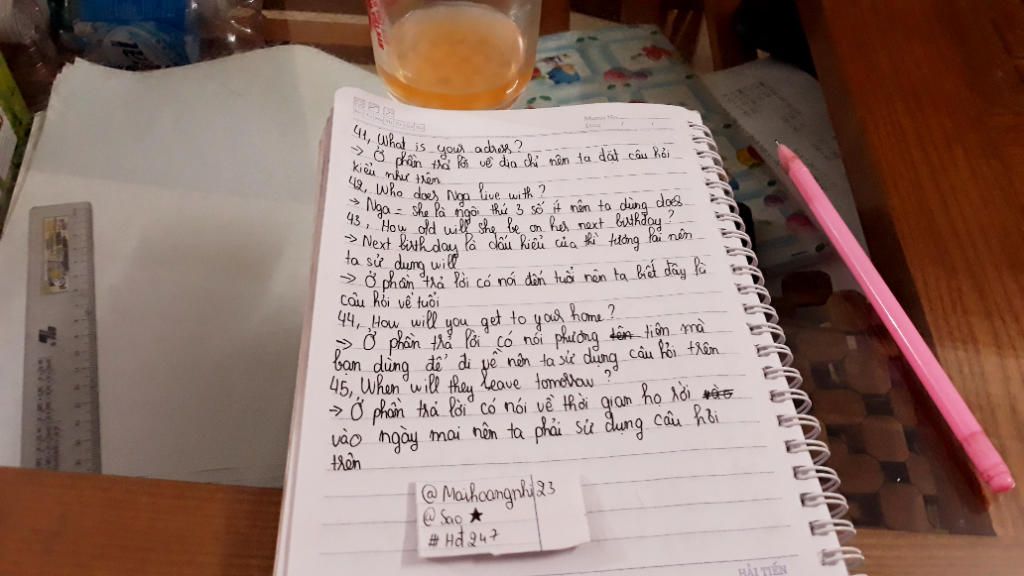 41, What is your adress?
→ Ở phần trả lời về địa chỉ nên ta đặt câu hỏi
kiểu như trên
42, Who does Nga live with?
→ Nga = she là ngôi thứ 3 số ít nên ta dùng does
43, How old will she be on her next birthday?
→ Next birthday là dấu hiệu của thì tương lai nên
ta sử dụng will
→ Ở phần trả lời có nói đến tuổi nên ta biết đây là
câu hỏi về tuổi
44, How will you get to your home?
→ Ở phần trả lời có nói phương tiện mà
bạn dùng để đi về nên ta sử dụng câu hỏi trên
45, When will they leave tomorrow?
→ Ở phần trả lời có nói về thời gian họ rời
vào ngày mai nên ta phải sử dụng câu hỏi
trên
@Maihoangnhi23
@Sao ★
#Hđ247
HẢI TIẾN